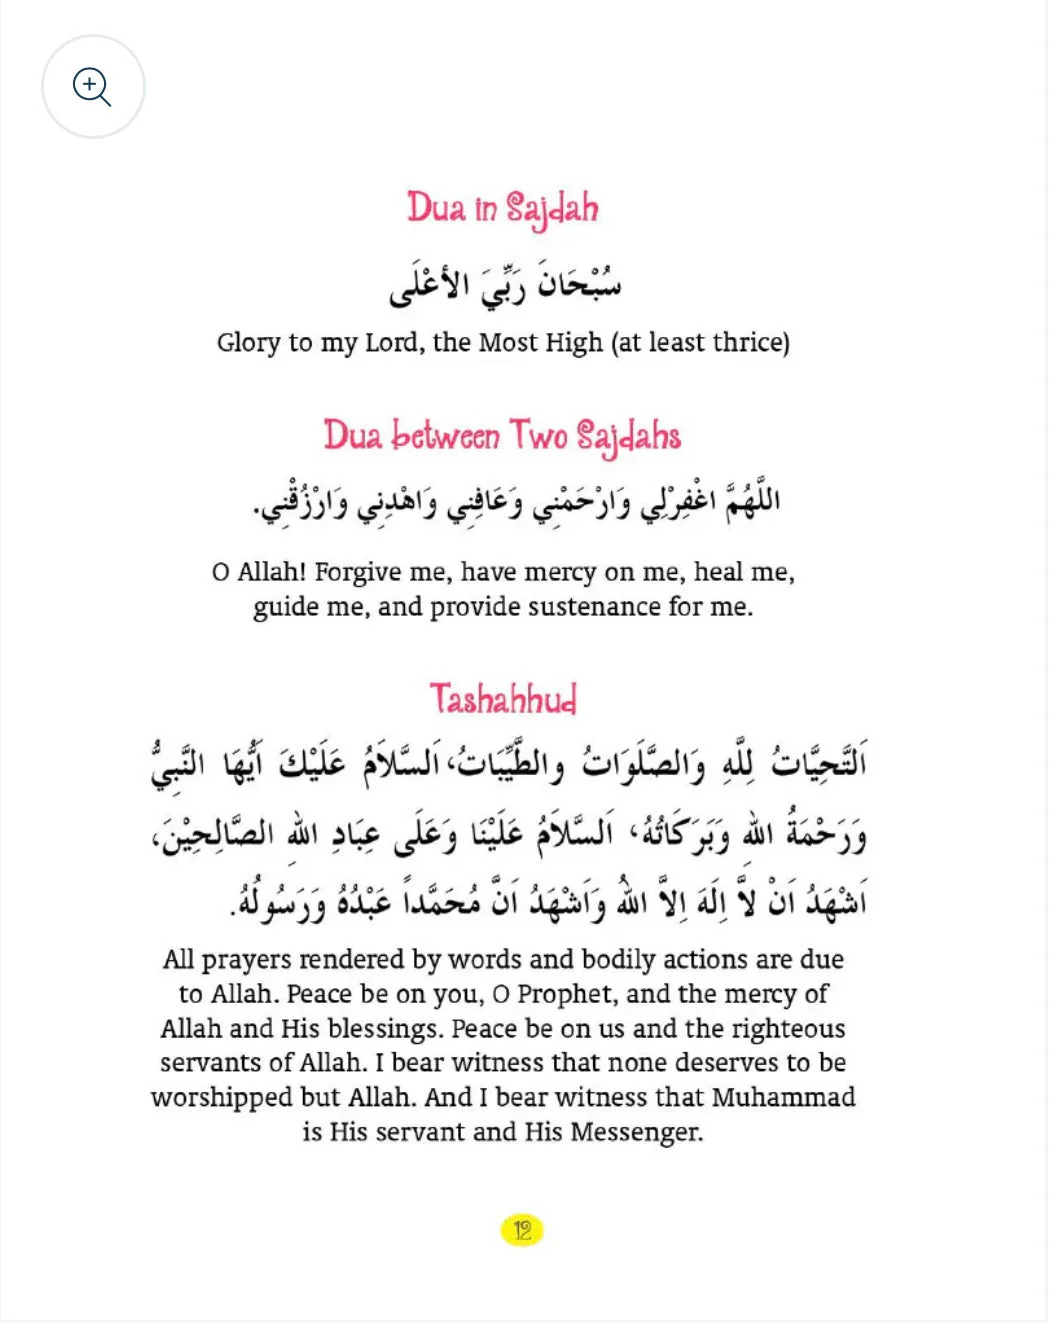 Dua in Sajdah
سُبْحَانَ رَبِّيَ الأعْلَى
Glory to my Lord, the Most High (at least thrice)
Dua between Two Sajdahs
اللَّهُمَّ اغْفِرْلِي وَارْحَمْنِي وَعَافِنِي وَاهْدِنِي وَارْزُقْنِي.
O Allah! Forgive me, have mercy on me, heal me,
guide me, and provide sustenance for me.
Tashahhud
اَلتَّحِيَّاتُ لِلَّهِ وَالصَّلَوَاتُ والطَّيِّبَاتُ، اَلسَّلاَمُ عَلَيْكَ اَيُّهَا النَّبِيُّ
وَرَحْمَةُ اللهِ وَبَرَكَاتُهُ، اَلسَّلاَمُ عَلَيْنَا وَعَلَى عِبَادِ اللهِ الصَّالِحِيْنَ،
اَشْهَدُ اَنْ لاَّ اِلَهَ اِلاَّ اللهُ وَاَشْهَدُ اَنَّ مُحَمَّداً عَبْدُهُ وَرَسُولُهُ.
All prayers rendered by words and bodily actions are due
to Allah. Peace be on you, O Prophet, and the mercy of
Allah and His blessings. Peace be on us and the righteous
servants of Allah. I bear witness that none deserves to be
worshipped but Allah. And I bear witness that Muhammad
is His servant and His Messenger.
12